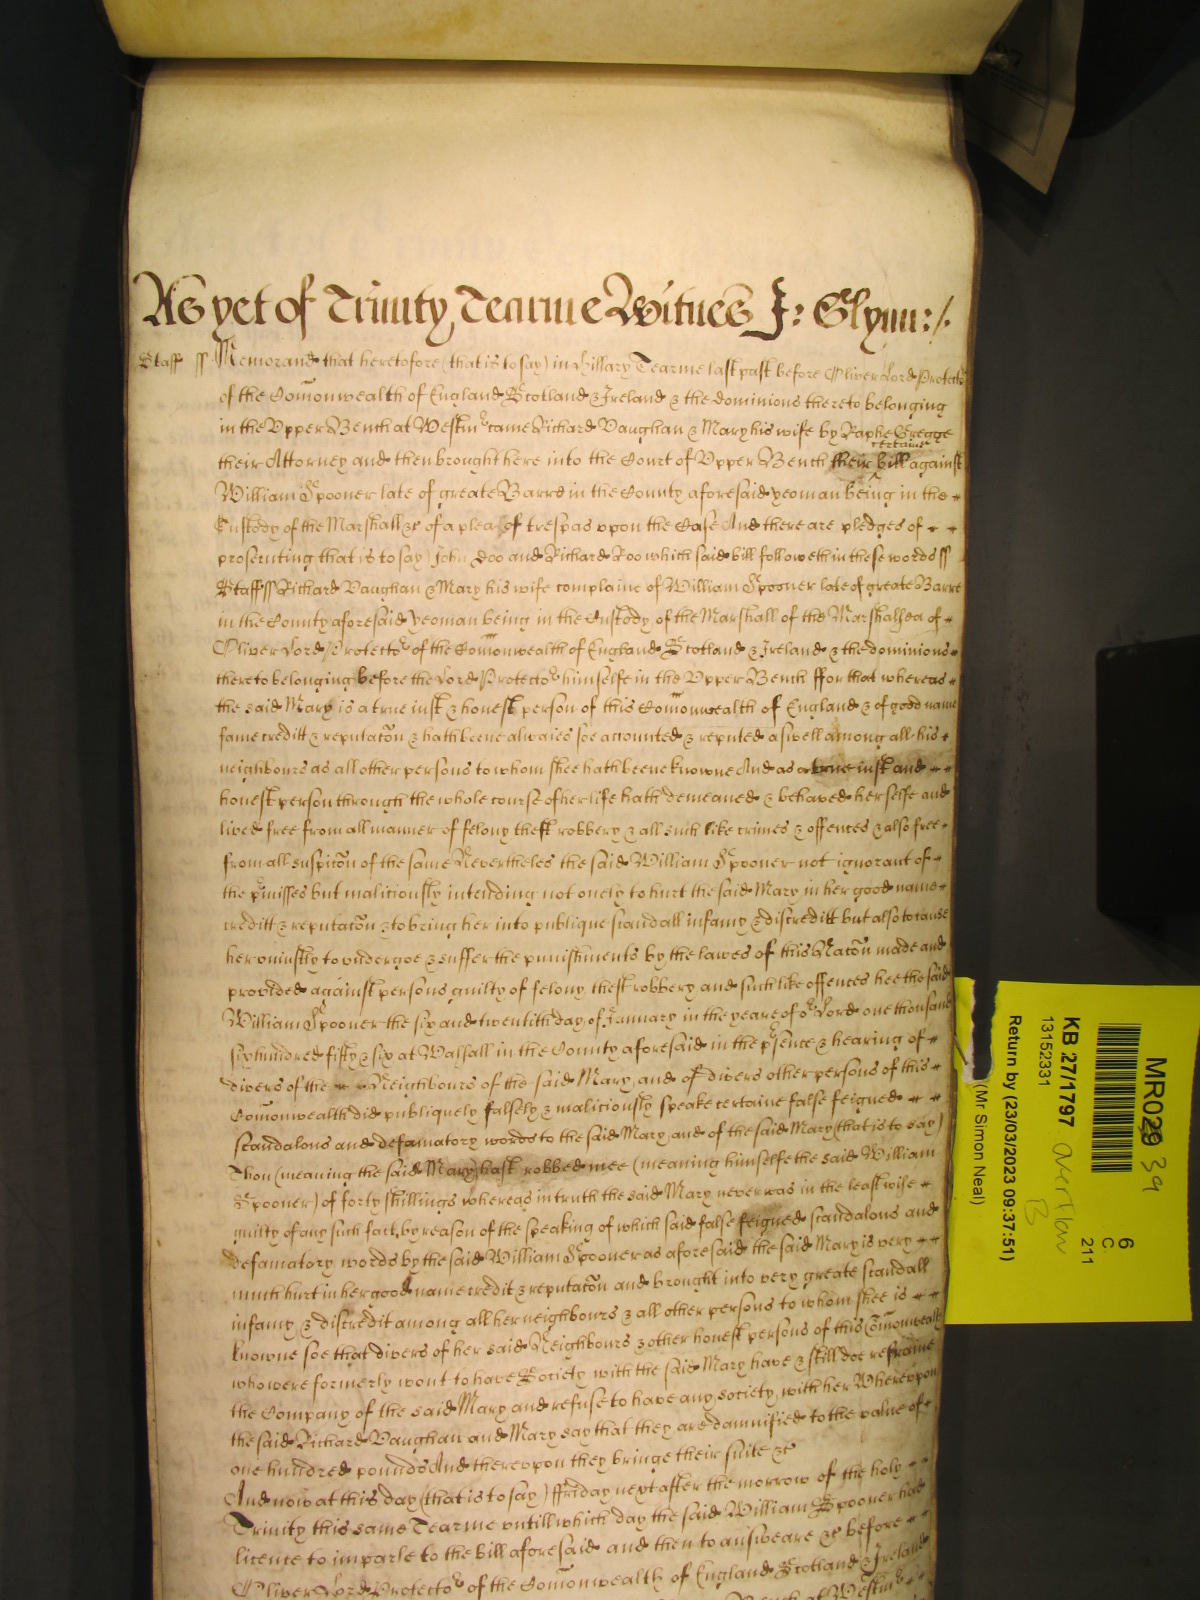 As yet of Trinity Tearme Witnes J: Glynn:/.
Staff ss Memorand that heretofore (that is to say) in Hillary Tearme last past before Oliver Lord Protector
of the Comonwealth of England Scotland & Ireland & the dominions thereto belonging
in the Vpper Bench at Westm came Richard Vaughan & Mary his wife by Raphe Gregge
their Attorney and then brought here into the Court of Vpper Bench their certaine bill against
William Spooner late of greate Barre in the County aforesaid yeoman being in the
Custody of the Marshall &c of a plea of trespas vpon the Case And there are pledges of
prosecuting that is to say John Doo and Richard Roo which said bill followeth in these words ss
Staff ss Richard Vaughan & Mary his wife complaine of William Spooner late of greate Barre
in the County aforesaid yeoman being in the Custody of the Marshall of the Marshalsea of
Oliver Lord Protector of the Comonwealth of England Scotland & Ireland & the dominions
thereto belonging before the Lord Protector himselfe in the Vpper Bench ffor that whereas
the said Mary is a true iust & honest person of this Comonwealth of England & of good name
fame creditt & reputacon & hath beene alwaies soe accounted & reputed aswell among all his
neighbours as all other persons to whom shee hath beene knowne And as a true iust and
honest person through the whole course of her life hath demeaned & behaved herselfe and
lived free from all manner of felony theft robbery & all such like crimes & offences & also free
from all suspicon of the same Nevertheles the said William Spooner not ignorant of
the pmisses but maliciously intending not onely to hurt the said Mary in her good name
creditt & reputacon & to bring her into publique scandall infamy & discreditt but also to cause
her vniustly to vndergoe & suffer the punishments by the lawes of this Nacon made and
provided against persons guilty of felony theft robbery and such like offences hee the said
William Spooner the six and twentith day of January in the yeare of or Lord one thousand
six hundred fifty & six at Walsall in the County aforesaid in the psence & hearing of
divers of the Neighbours of the said Mary and of divers other persons of this
Comonwealth did publiquely falsely & maliciously speake certaine false feigned
scandalous and defamatory words to the said Mary and of the said Mary (that is to say)
Thou (meaning the said Mary) hast robbed mee (meaning himselfe the said William
Spooner) of forty shillings whereas in truth the said Mary never was in the least wise
guilty of any such fact, by reason of the speaking of which said false feigned scandalous and
defamatory words by the said William Spooner as aforesaid the said Mary is very
much hurt in her good name credit & reputacon and brought into very greate scandall
infamy & discredit among all her neighbours & all other persons to whom shee is
knowne soe that divers of her said Neighbours & other honest persons of this Comonwealth
who were formerly wont to have Society with the said Mary have & still doe refraine
the Company of the said Mary and refuse to have any society with her Wherevpon
the said Richard Vaughan and Mary say that they are damnified to the value of
one hundred pounds And therevpon they bringe their suite &c
And now at this day (that is to say) ffriday next after the morrow of the holy
Trinity this same Tearme vntill which day the said William Spooner had
licence to imparle to the bill aforesaid and then to answeare &c before
Oliver Lord Protector of the Comonwealth of England Scotland & Ireland
Bench at Westm
MR029 39
6
C
211
KB 27/1797 overflow
B
13152331
Return by (23/03/2023 09:37:51)
(Mr Simon Neal)